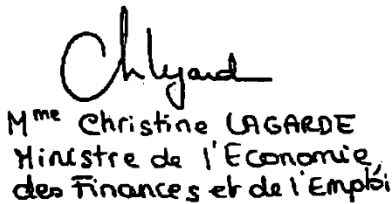 Ch Lagarde
Mme Christine LAGARDE
Ministre de l'Economie,
des Finances et de l'Emploi